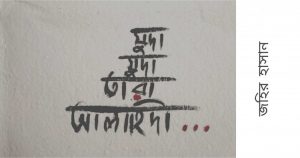 মুদা
মুদা
তারা
আলাহিদা...
জহির হাসান